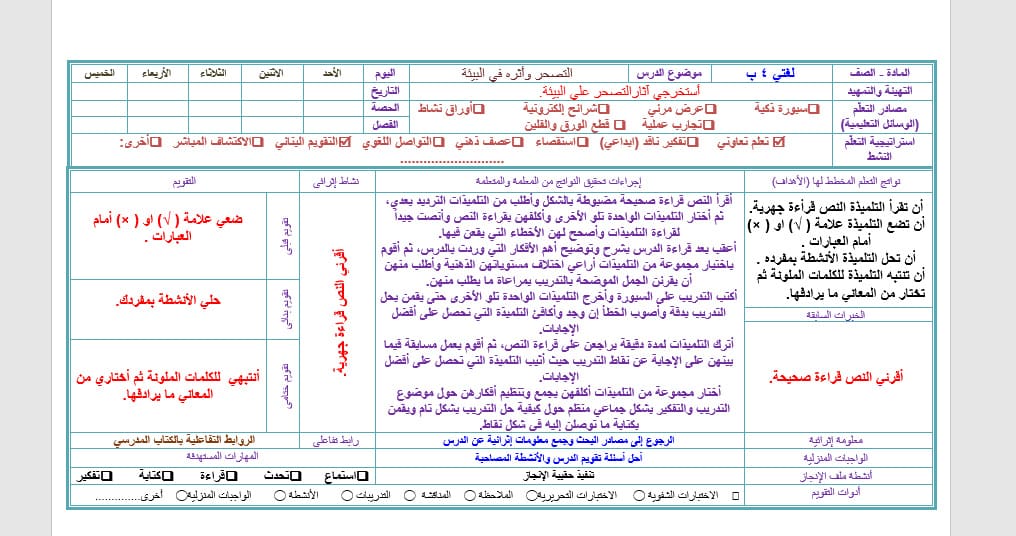 المادة - الصف لغتي ٤ ب موضوع الدرس التصحر وأثره في البيئة اليوم الأحد الاثنين الثلاثاء الأربعاء الخميس
التهيئة والتمهيد أستخرجي آثارالتصحر علي البيئة. التاريخ
مصادر التعلّم سبورة ذكية عرض مرئي شرائح إلكترونية أوراق نشاط الحصة
(الوسائل التعليمية) تجارب عملية قطع الورق والفلين الفصل
استراتيجية التعلّم تعلم تعاوني تفكير ناقد (ابداعي) استقصاء عصف ذهني التواصل اللغوي التقويم البنائي الاكتشاف المباشر أخرى:
النشط ...........................
نواتج التعلم المخطط لها (الأهداف) إجراءات تحقيق النواتج من المعلمة والمتعلمة نشاط إثرائى التقويم
أن تقرأ التلميذة النص قرأءة جهرية.
أن تضع التلميذة علامة ( √) او ( ×)
أمام العبارات .
أن تحل التلميذة الأنشطة بمفرده .
أن تنتبه التلميذة للكلمات الملونة ثم
تختار من المعاني ما يرادفها.
الخبرات السابقة
أقرئي النص قراءة صحيحة.
أقرأ النص قراءة صحيحة مضبوطة بالشكل وأطلب من التلميذات الترديد بعدي،
ثم أختار التلميذات الواحدة تلو الأخرى وأكلفهن بقراءة النص وأنصت جيداً
لقراءة التلميذات وأصحح لهن الأخطاء التي يقعن فيها.
أعقب بعد قراءة الدرس بشرح وتوضيح أهم الأفكار التي وردت بالدرس، ثم أقوم
باختيار مجموعة من التلميذات أراعي اختلاف مستوياتهن الذهنية وأطلب منهن
أن يقرئن الجمل الموضحة بالتدريب بمراعاة ما يطلب منهن.
أكتب التدريب على السبورة وأخرج التلميذات الواحدة تلو الأخرى حتى يقمن بحل
التدريب بدقة وأصوب الخطأ إن وجد وأكافئ التلميذة التي تحصل على أفضل
الإجابات.
أترك التلميذات لمدة دقيقة يراجعن على قراءة النص، ثم أقوم بعمل مسابقة فيما
بينهن على الإجابة عن نقاط التدريب حيث أثيب التلميذة التي تحصل على أفضل
الإجابات.
أختار مجموعة من التلميذات أكلفهن بجمع وتنظيم أفكارهن حول موضوع
التدريب والتفكير بشكل جماعي منظم حول كيفية حل التدريب بشكل تام ويقمن
بكتابة ما توصلن إليه في شكل نقاط.
أقرئي النص قراءة جهرية.
تقويم قبلي
ضعي علامة ( √) او ( ×) أمام
العبارات .
تقويم بنائى
حلي الأنشطة بمفردك.
تقويم ختامى
أنتبهي للكلمات الملونة ثم أختاري من
المعاني ما يرادفها.
معلومة إثرائية الرجوع إلى مصادر البحث وجمع معلومات إثرائية عن الدرس رابط تفاعلى الروابط التفاعلية بالكتاب المدرسي
الواجبات المنزلية أحل أسئلة تقويم الدرس والأنشطة المصاحبة المهارات المستهدفة
أنشطة ملف الإنجاز تنفيذ حقيبة الإنجاز استماع تحدث قراءة كتابة تفكير
أدوات التقويم الاختبارات الشفوية الاختبارات التحريرية الملاحظة المناقشة التدريبات الأنشطة الواجبات المنزلية أخرى..............